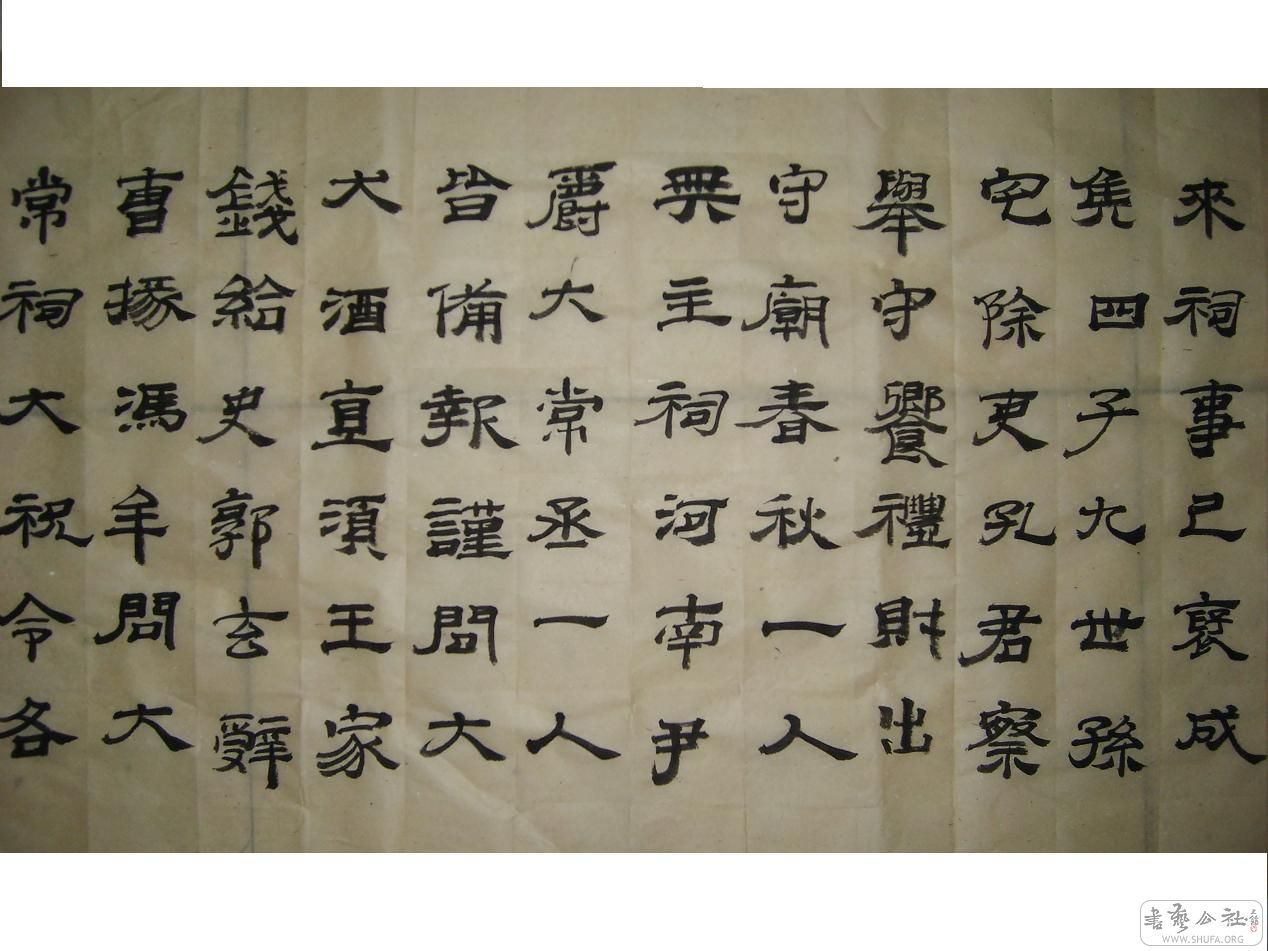 來祠事已襃成
矦四子九世孫
宅除吏孔君察
舉守饗禮財出
守廟春秋一人
典主祠河南尹
爵大常丞一人
皆備報謹問大
犬酒直須王家
錢給史郭玄辭
曹掾馮牟問大
常祠大祝令各
書藝公社
WWW.SHUFA.ORG